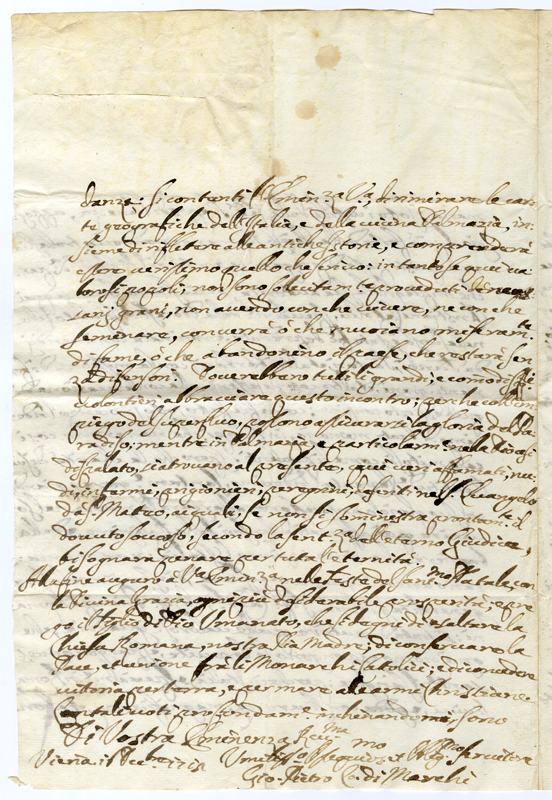 danze: si contenti l'Eminza Va di rimirare le car-
te geografiche dell'Italia, e della vicina Dalmazia, in-
sieme di riflettere alle antiche Istorie, e comprenderà
essere verissimo quello che scrivo: in tanto se quei va-
lorosi popoli, non sono sollecitamte proveduti de neces-
sarij grani, non avendo con che vivere, ne con che
seminare, converrà ò che muoiano miseramte
di fame, ò che abandonino il paese, che restarà sen-
za difensori: Doverebbero tutti li grandi, e comodi
volontieri abbracciare questo incontro; perche con l'im-
piego del superfluo, possono assicurarsi la gloria del Pa-
radiso, mentre in Dalmazia e particolarme nella Diocesi
di Spalato, si trovano al presente, quei veri affamati, nu-
di, infermi, prigionieri, peregrini, descritti nel S. Evangelo
da S. Matteo, ai quali, se non si somministra prontamte il
dovuto soccorso, secondo la sentza dell'eterno Giudice,
bisognarà penare per tutta l'eternità.
Alla fine auguro à Va Eminza nelle Feste del Santmo Natale, con
la Divina Grazia, ogni più desiderabile prosperità, e pre-
go il Figlio di Dio Umanato, che si degni di esaltare la
Chiesa Romana, nostra Pia Madre; di conservare la
Pace, et unione frà li Monarchi Catolici; e di concedere
vittoria per terra, e per mare alle armi Christiane.
Con tali voti profondame inchinandomi, sono
Di Vostra Eminenza Revma
Viena 1718 Umilmo Ossequiosmo et Obligmo servitore
Gio: Pietro Co: di Marchi